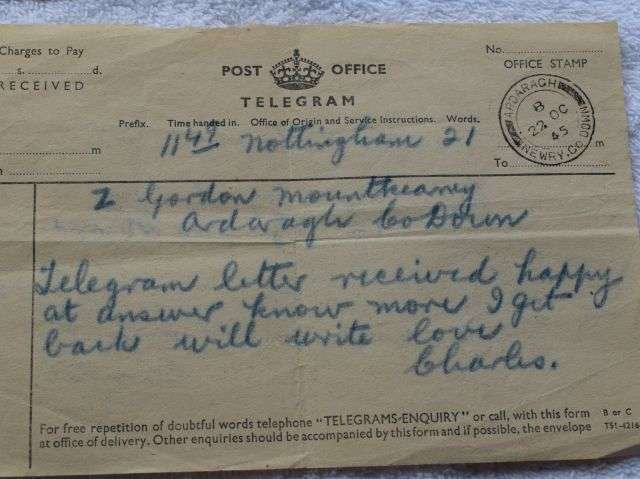 Charges to Pay
s. d.
RECEIVED
m
POST OFFICE
TELEGRAM
Prefix. Time handed in. Office of Origin and Service Instructions. Words.
No.
OFFICE STAMP
ARDARAGH
8
22 OC
45
NEWRY. CO DOWN
m
To
1149 Nottingham 21
Gordon Mountkearney
Ardaragh Co Down
Telegram letter received happy
at answer know more I get
back will write love
Charles.
For free repetition of doubtful words telephone "TELEGRAMS-ENQUIRY" or call, with this form
at office of delivery. Other enquiries should be accompanied by this form and if possible, the envelope
B or C